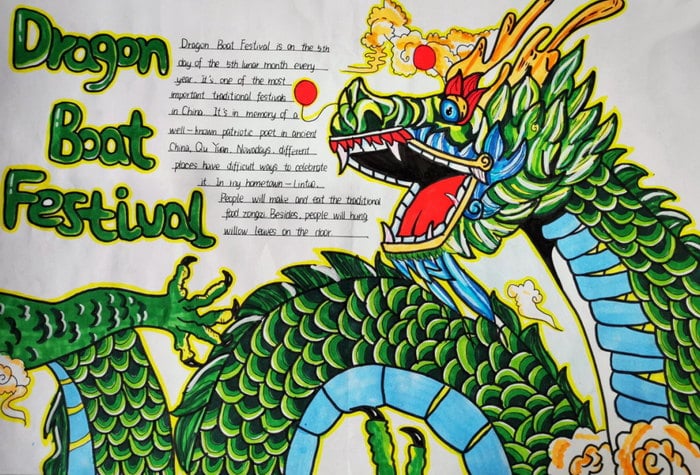 Dragon
Boat
Festival
Dragon Boat Festival is on the 5th
day of the 5th lunar month every
year. it's one of the most
important traditional festivals
in China. It's in memory of a
well-known patriotic poet in ancient
China, Qu Yuan. Nowadays, different
places have difficult ways to celebrate
it. In my hometown-Lintao.
People will make and eat the traditional
food zongzi. Besides, people will hung
willow leaves on the door.